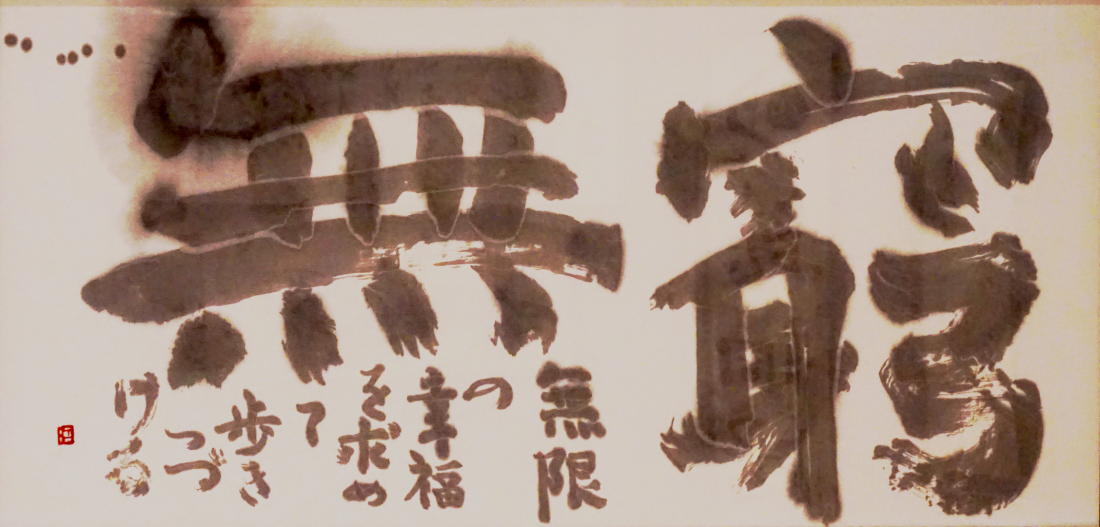 無窮
無限
の
幸福
を求め
て
歩き
つづ
ける